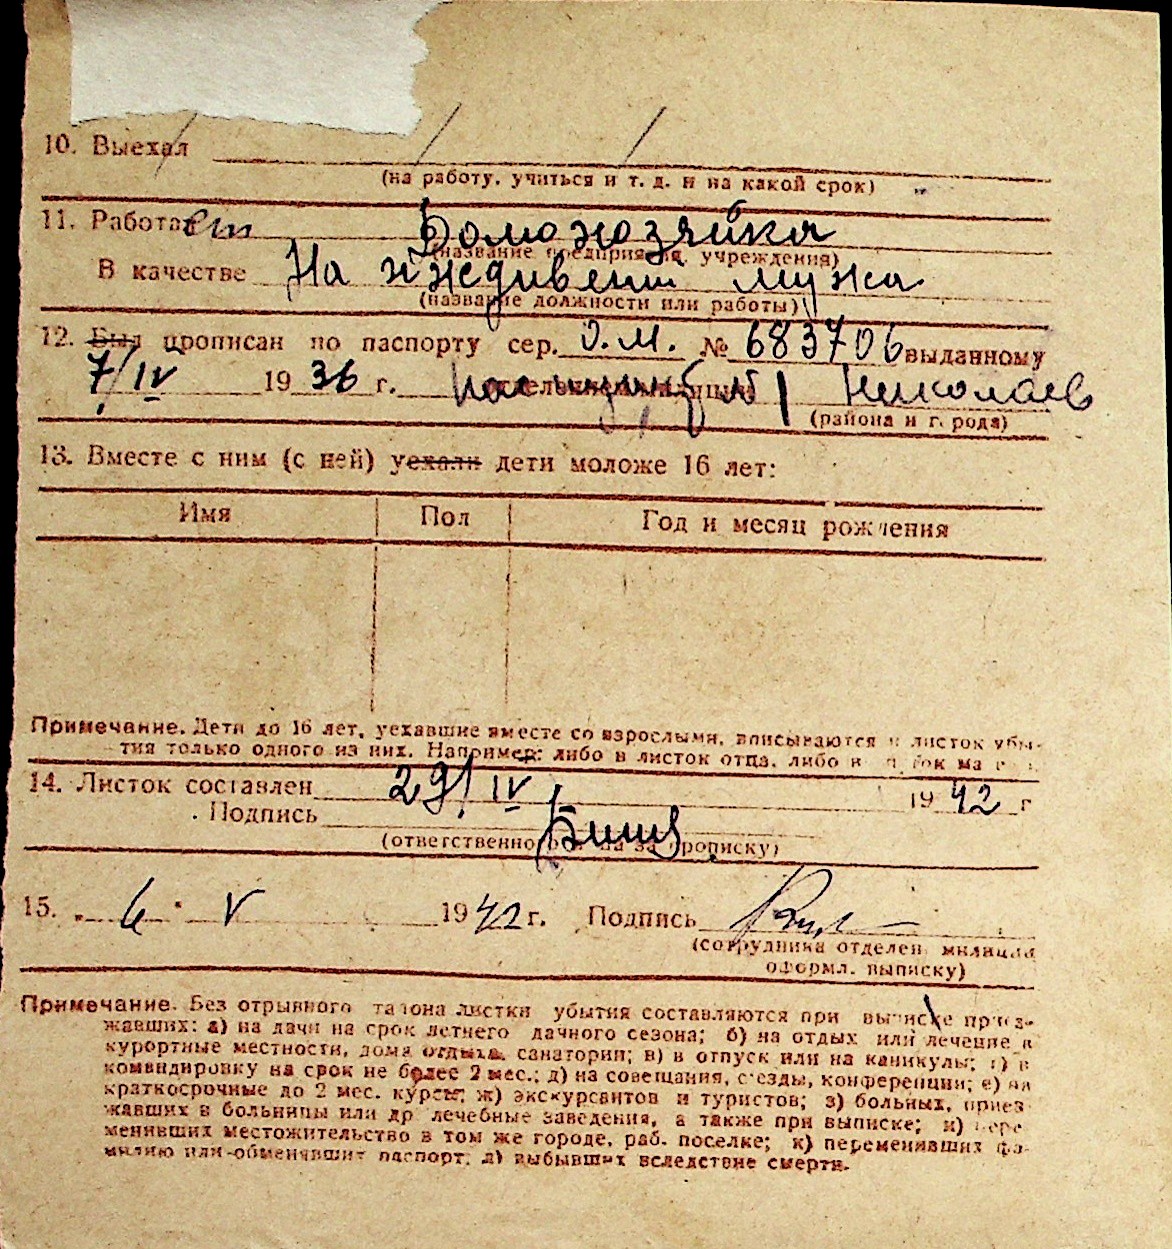 10. Выехал
(на работу, учиться и т. д. и на какой срок)
11. Работает Домохозяйка
(название предприятия, учреждения)
В качестве На иждивении мужа
(название должности или работы)
12. Был прописан по паспорту сер. О.М. № 683706 выданному
7/IV 1936 г. отделением милиции 1 Николаев
(района и города)
13. Вместе с ним (с ней) уехали дети моложе 16 лет:
Имя Пол Год и месяц рождения
Примечание. Дети до 16 лет, уехавшие вместе со взрослыми, вписываются в листок убы-
тия только одного из них. Например: либо в листок отца, либо в листок ма
14. Листок составлен 29/IV 1942 г
Подпись
(ответственного за прописку)
15. „ 6 " V 1942 г. Подпись
(сотрудника отделен. милиции
оформл. выписку)
Примечание. Без отрывного талона листки убытия составляются при выписке приез-
жавших: а) на дачи на срок летнего дачного сезона; б) на отдых или лечение в
курортные местности, дома отдыха, санатории; в) в отпуск или на каникулы; г) в
командировку на срок не более 2 мес.; д) на совещания, съезды, конференции; е) на
краткосрочные до 2 мес. курсы; ж) экскурсантов и туристов; з) больных, приез
жавших в больницы или др лечебные заведения, а также при выписке; и) пере
менивших местожительство в том же городе, раб. поселке; к) переменивших фа-
милию или обменявших паспорт; л) выбывших вследствие смерти.